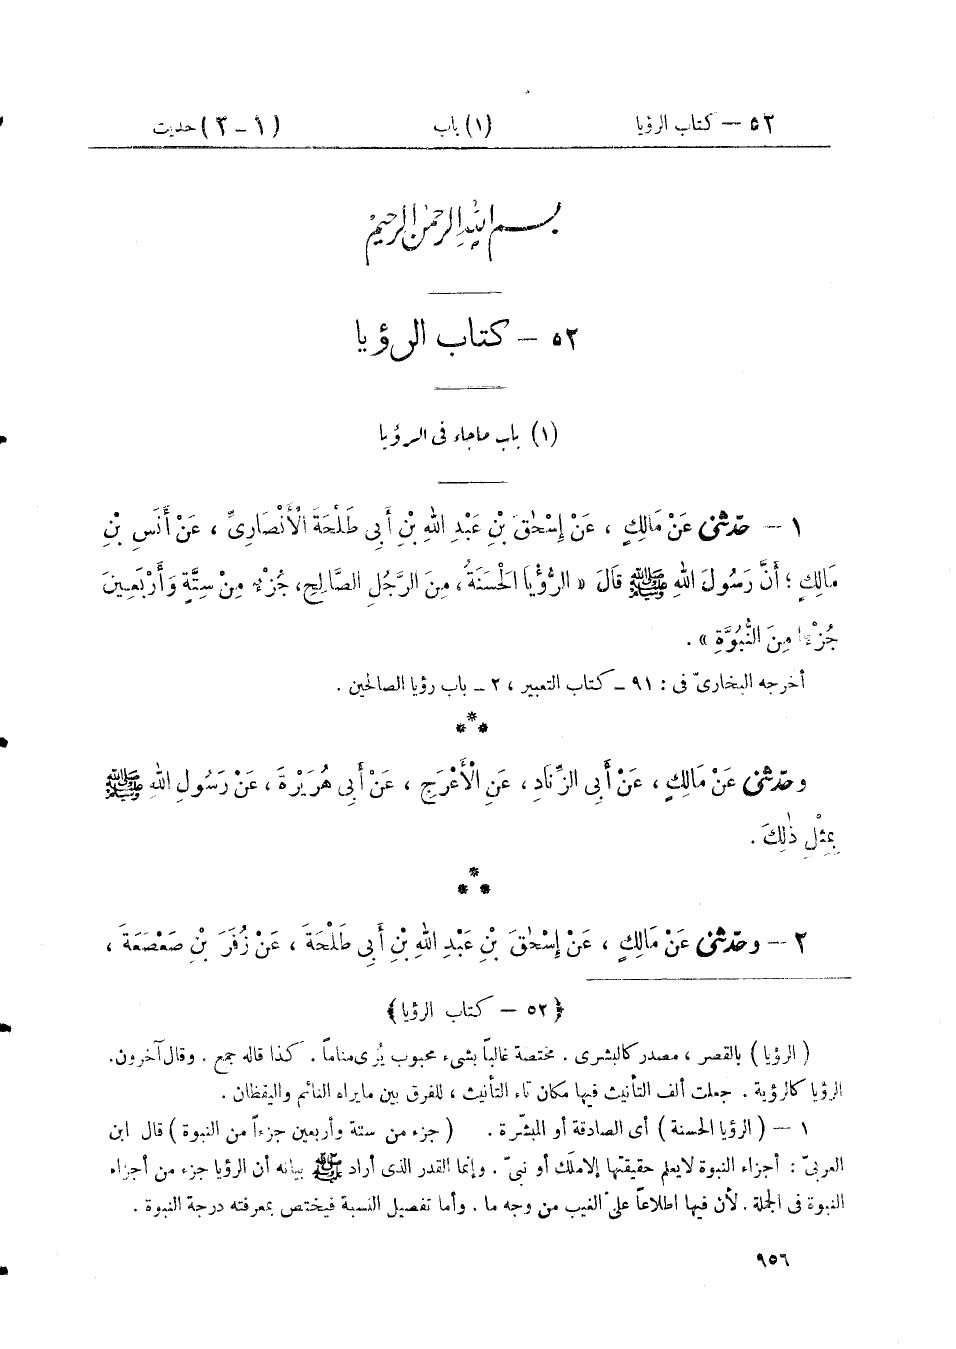 ٥٢ — كتاب الرؤيا (١) باب (١ – ٢) حديث
بسم الله الرحمن الرحيم
٥٢ – كتاب الرؤيا
(١) باب ماجاء فى الرؤيا
١ – حدّثنى عَنْ مَالِكٍ ، عَنْ إِسْحٰقَ بْنِ عَبْدِ اللهِ بْنِ أَبِى طَلْحَةَ الْأَنْصَارِىِّ ، عَنْ أَنَسِ بْنِ
مَالِكٍ ؛ أَنَّ رَسُولَ اللهِ ﷺ قَالَ « الرُّؤْيَا الْحَسَنَةُ ، مِنَ الرَّجُلِ الصَّالِحِ، جُزْءٌ مِنْ سِتَّةٍ وَأَرْبَعِينَ
جُزْءًا مِنَ النُّبُوَّةِ » .
أخرجه البخارىّ فى : ٩١ – كتاب التعبير ، ٢ – باب رؤيا الصالحين .
***
وحدّثنى عَنْ مَالِكٍ ، عَنْ أَبِى الزِّنَادِ ، عَنِ الْأَعْرَجِ ، عَنْ أَبِى هُرَيْرَةَ ، عَنْ رَسُولِ اللهِ ﷺ
بِمِثْلِ ذٰلِكَ .
***
٢ – وحدّثنى عَنْ مَالِكٍ ، عَنْ إِسْحٰقَ بْنِ عَبْدِ اللهِ بْنِ أَبِى طَلْحَةَ ، عَنْ زُفَرَ بْنِ صَعْصَعَةَ ،
﴿ ٥٢ – كتاب الرؤيا ﴾
( الرؤيا ) بالقصر ، مصدر كالبشرى . مختصة غالباً بشىء محبوب يُرى مناماً . كذا قاله جمع . وقال آخرون.
الرؤيا كالرؤية . جعلت ألف التأنيث فيها مكان تاء التأنيث ، للفرق بين مايراه النائم واليقظان .
١ – ( الرؤيا الحسنة ) أى الصادقة أو المبشّرة . ( جزء من ستة وأربعين جزءاً من النبوة ) قال ابن
العربىّ : أجزاء النبوة لايعلم حقيقتها إلا ملَك أو نبىّ . وإنما القدر الذى أراد ﷺ بيانه أن الرؤيا جزء من أجزاء
النبوة فى الجملة . لأن فيها اطلاعاً على الغيب من وجه ما . وأما تفصيل النسبة فيختص بمعرفته درجة النبوة .
٩٥٦